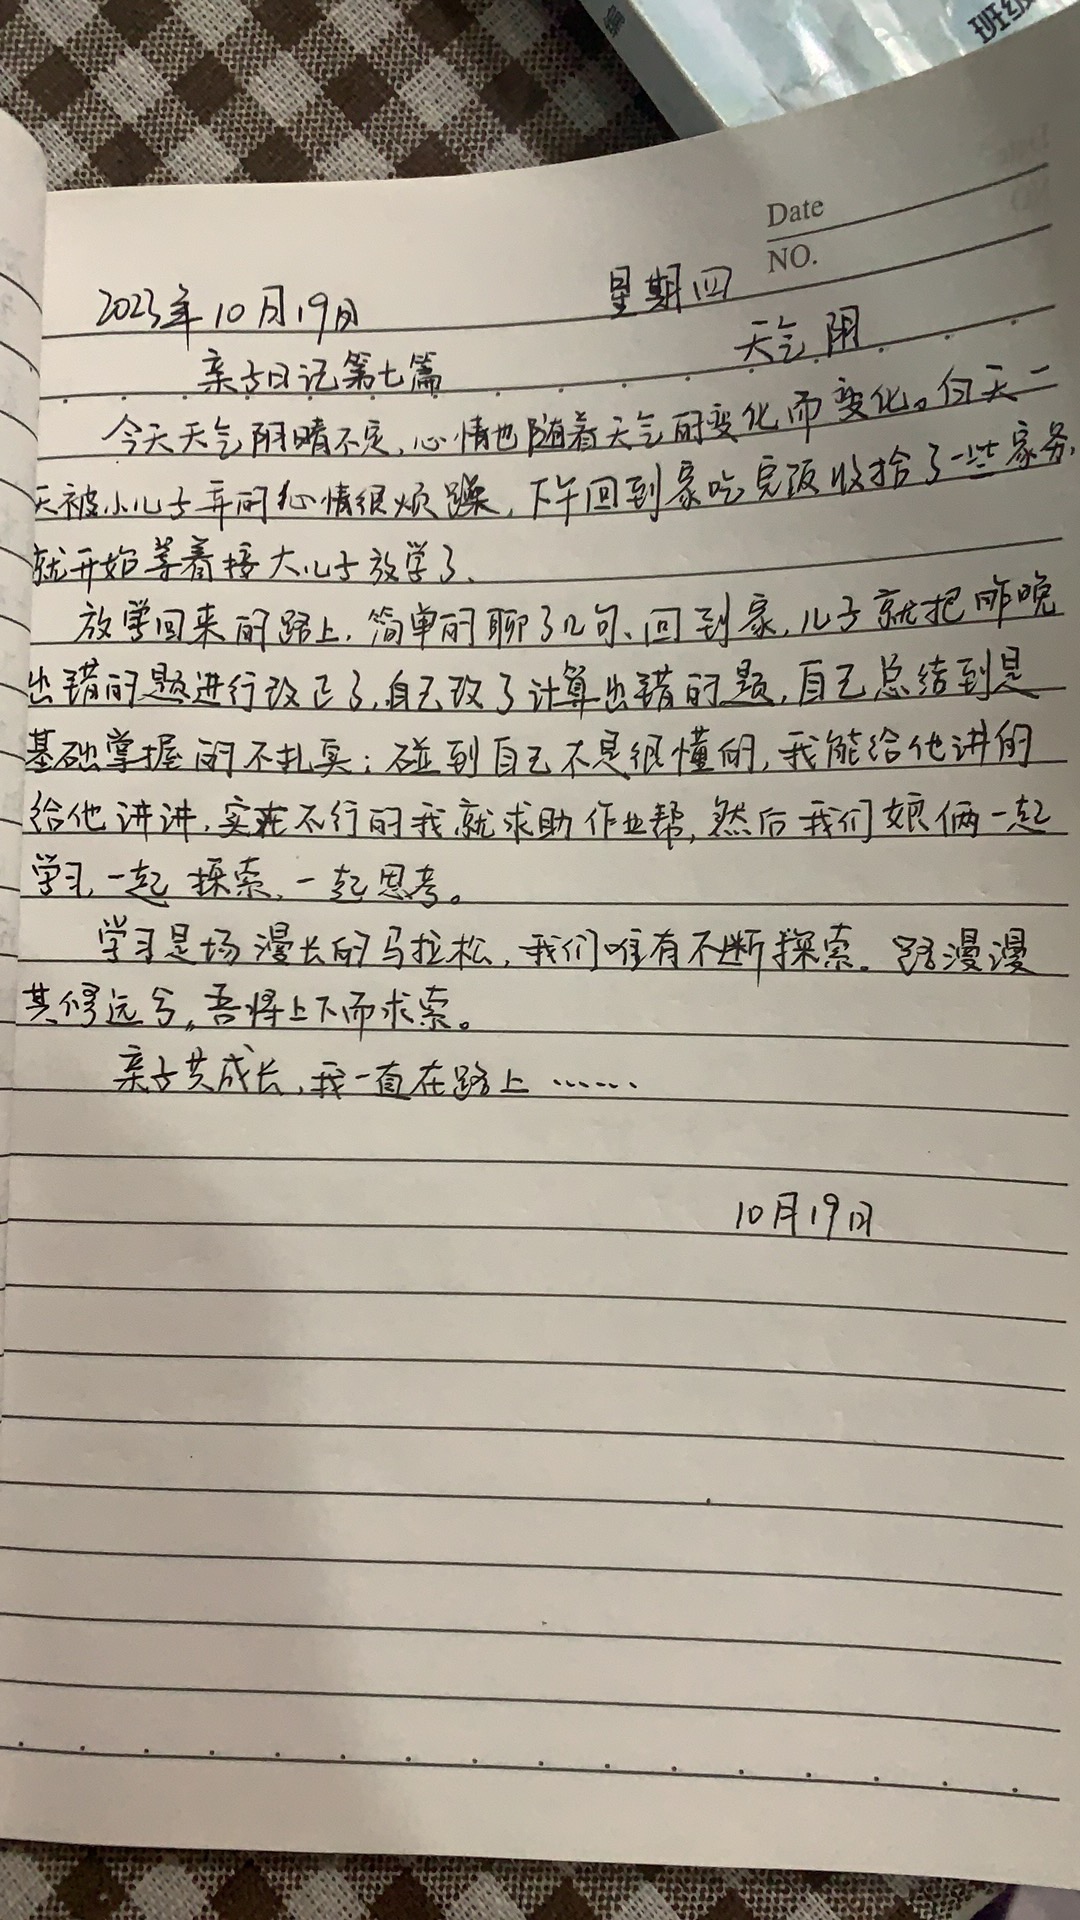 编
班级
Date
NO.
2023年10月19日 星期四
天气 阴
亲子日记第七篇
今天天气阴晴不定,心情也随着天气的变化而变化。白天一
天被小儿子弄的心情很烦躁,下午回到家吃完饭收拾了一些家务,
就开始等着接大儿子放学了、
放学回来的路上,简单的聊了几句、回到家,儿子就把昨晚
出错的题进行改正了,自己改了计算出错的题,自己总结到是
基础掌握的不扎实;碰到自己不是很懂的,我能给他讲的
给他讲讲,实在不行的我就求助作业帮,然后我们娘俩一起
学习,一起探索,一起思考。
学习是场漫长的马拉松,我们唯有不断探索。路漫漫
其修远兮,吾将上下而求索。
亲子共成长,我一直在路上……
10月19日